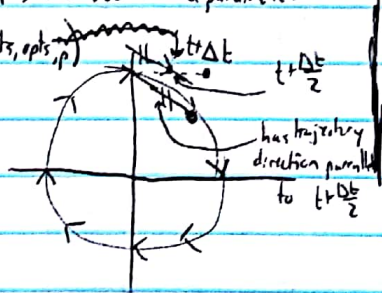 ts, opts, p)
t+Δt
t+Δt/2
has trajectory
direction parallel
to t+Δt/2